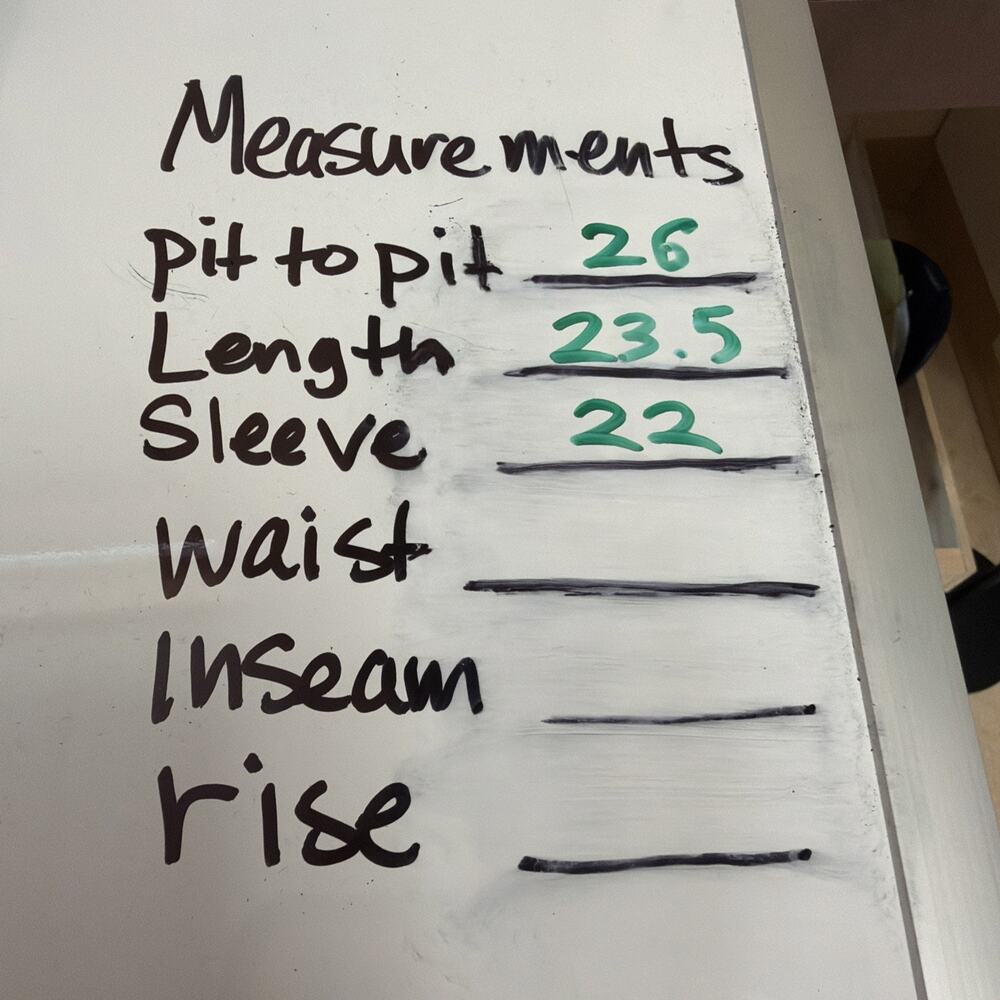 Measurements
pit to pit 26
Length 23.5
Sleeve 22
waist
Inseam
rise